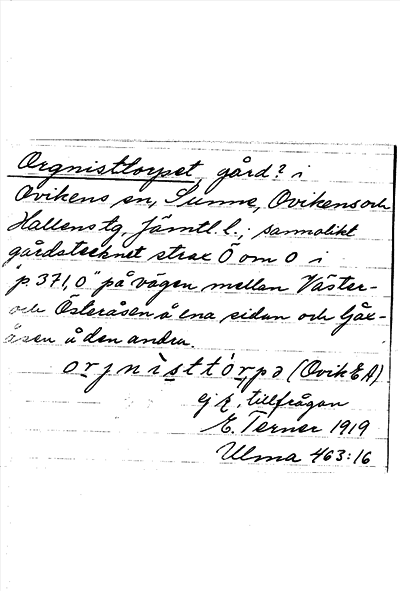 Orgnisttorpet, gård? i
Ovikens sn, Sunne, Ovikens och
Hallens tg, Jämtl. l.; sannolikt
gårdstecknet strax Ö om 0 i
"p 371,0" på vägen mellan Väster-
och Österåsen å ena sidan och Gåx-
åsen å den andra.
orgnìsttórpə (Ovik EA)
ej r. tillfrågan
E. Terner 1919
Ulma 463:16